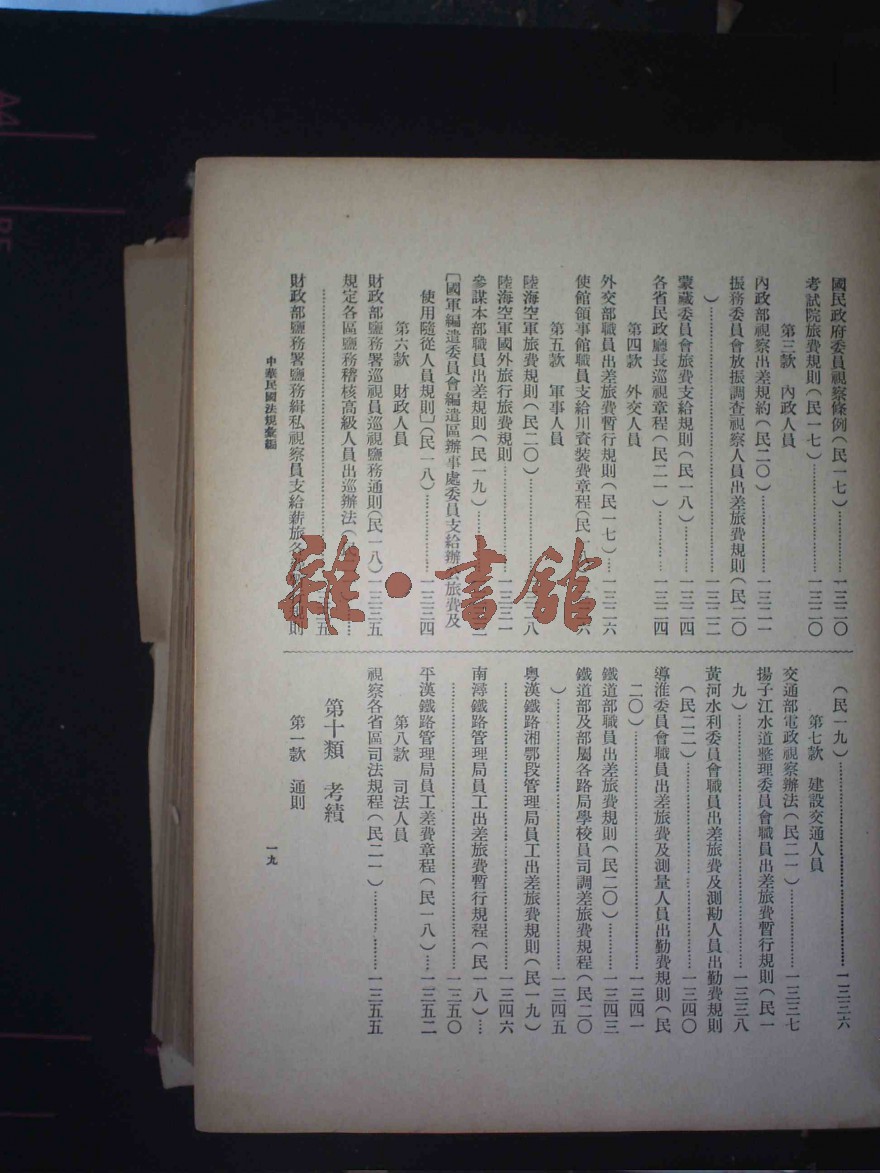 國民政府委員視察條例(民一七)…………一三二〇
考試院旅費規則(民一七)…………一三二〇
第三款 內政人員
內政部視察出差規約(民二〇)…………一三二一
振務委員會放振調查視察人員出差旅費規則(民二〇
)…………一三二二
蒙藏委員會旅費支給規則(民一八)…………一三二四
各省民政廳長巡視章程(民二一)…………一三二四
第四款 外交人員
外交部職員出差旅費暫行規則(民一七)…一三二六
使館領事館職員支給川資裝費章程(民一
第五款 軍事人員
陸海空軍旅費規則(民二〇)…………
陸海空軍國外旅行旅費規則…………一三三一
參謀本部職員出差規則(民一九)…………
〔國軍編遣委員會編遣區辦事處委員支給辦公旅費及
使用隨從人員規則〕(民一八)…………一三三四
第六款 財政人員
財政部鹽務署巡視員巡視鹽務通則(民一八)一三三五
規定各區鹽務稽核高級人員出巡辦法(
…………
財政部鹽務署鹽務緝私視察員支給薪旅
(民一九)…………一三三六
第七款 建設交通人員
交通部電政視察辦法(民二一)…………一三三七
揚子江水道整理委員會職員出差旅費暫行規則(民一
九)…………一三三八
黃河水利委員會職員出差旅費及測勘人員出勤費規則
(民二二)…………一三四〇
導淮委員會職員出差旅費及測量人員出勤費規則(民
二〇)…………一三四一
鐵道部職員出差旅費規則(民二〇)…………一三四三
鐵道部及部屬各路局學校員司調差旅費規程(民二〇
)…………一三四五
粵漢鐵路湘鄂段管理局員工出差旅費規則(民一九)
…………一三四六
南潯鐵路管理局員工出差旅費暫行規程(民一八)…
…………一三五〇
平漢鐵路管理局員工差費章程(民一八)…一三五二
第八款 司法人員
視察各省區司法規程(民二一)…………一三五五
第十類 考績
第一款 通則
中華民國法規彙編
一九
雜·書館